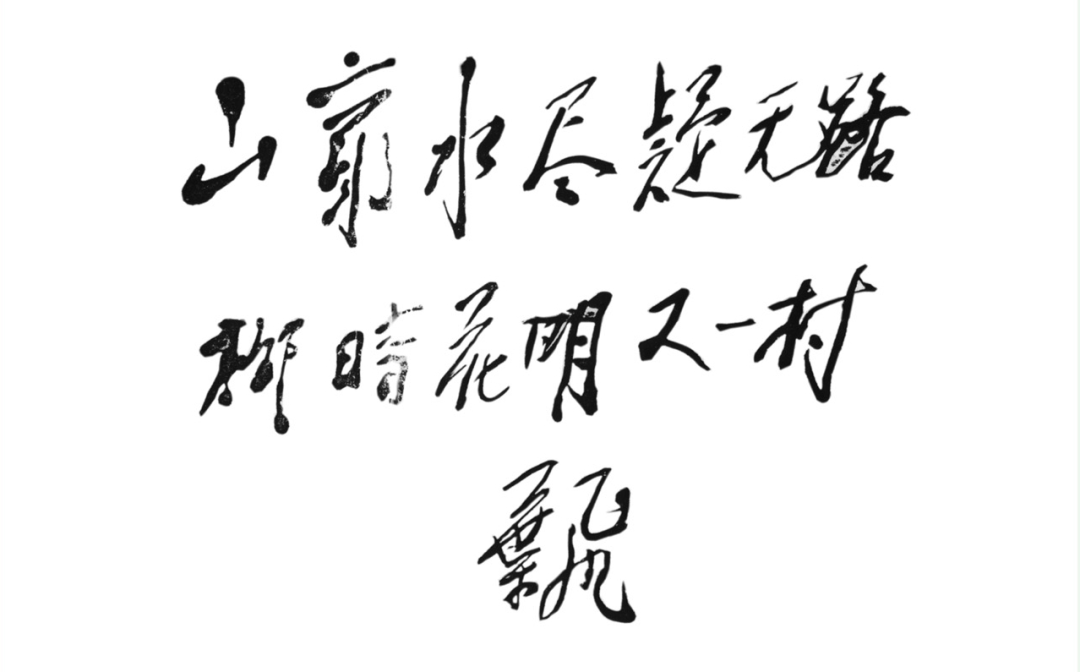 山窮水尽疑无路
柳暗花明又一村